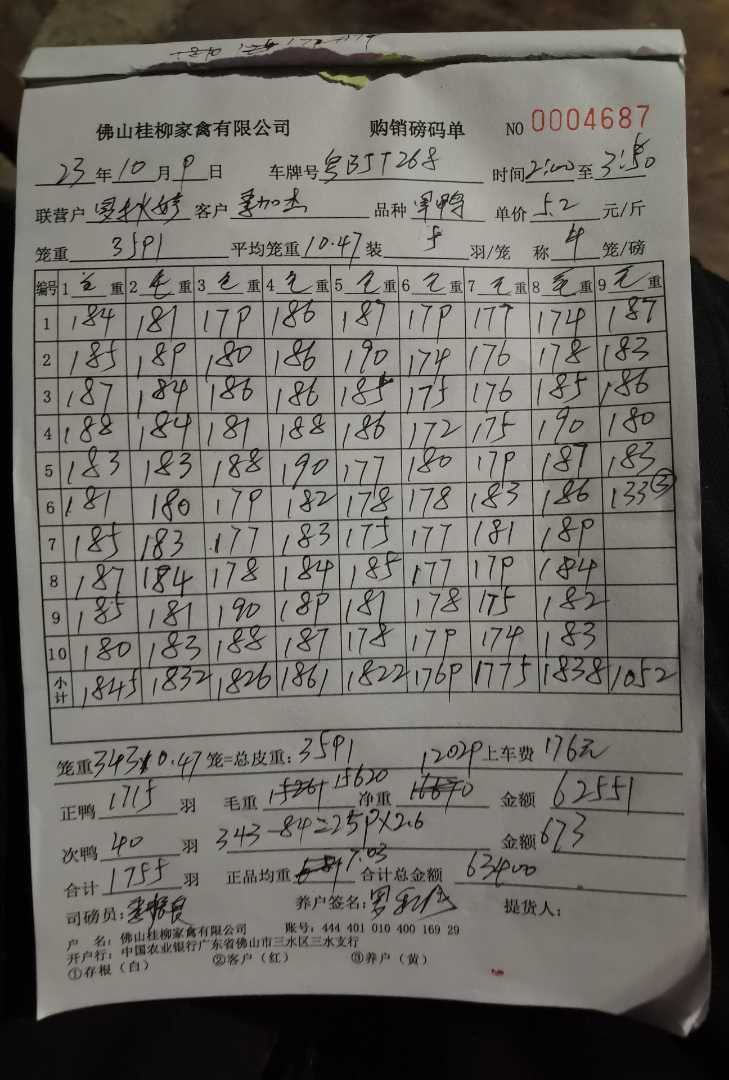 佛山桂柳家禽有限公司 购销磅码单 NO 0004687
23 年 10 月 9 日 车牌号 粤BJT268 时间 2:00 至 3:50
联营户 客户 品种 单价 5.2 元/斤
笼重 3591 平均笼重 10.47 装 5 羽/笼 称 4 笼/磅
编号 1 毛 重 2 毛 重 3 毛 重 4 毛 重 5 毛 重 6 毛 重 7 毛 重 8 毛 重 9 毛 重
1 184 181 179 186 187 179 177 174 187
2 185 189 180 186 190 174 176 178 183
3 187 184 186 186 185 175 176 185 186
4 188 184 181 188 186 172 175 190 180
5 183 183 188 190 177 180 179 187 183
6 181 180 179 182 178 178 183 186 133③
7 185 183 177 183 175 177 181 189
8 187 184 178 184 185 177 179 184
9 185 181 190 189 181 178 175 182
10 180 183 188 187 178 179 174 183
小计 1845 1832 1826 1861 1822 1769 1775 1838 1052
笼重 343×10.47 笼=总皮重: 3591 12029 上车费 176元
正鸭 1715 羽 毛重 15620 净重 金额 62551
次鸭 40 羽 343-84=259×2.6 金额 673
合计 1755 羽 正品均重 7.03 合计总金额 63400
司磅员: 养户签名: 提货人:
户 名: 佛山桂柳家禽有限公司 账号: 444 401 010 400 169 29
开户行: 中国农业银行广东省佛山市三水区三水支行
①存根（白） ②客户（红） ③养户（黄）